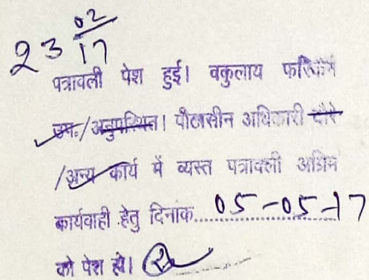 23 02/17
पत्रावली पेश हुई। वकुलाय फरिकैन
उप./अनुपस्थित। पीठासीन अधिकारी दौरे
/अन्य कार्य में व्यस्त पत्रावली अग्रिम
कार्यवाही हेतु दिनांक....05-05-17
को पेश हो।